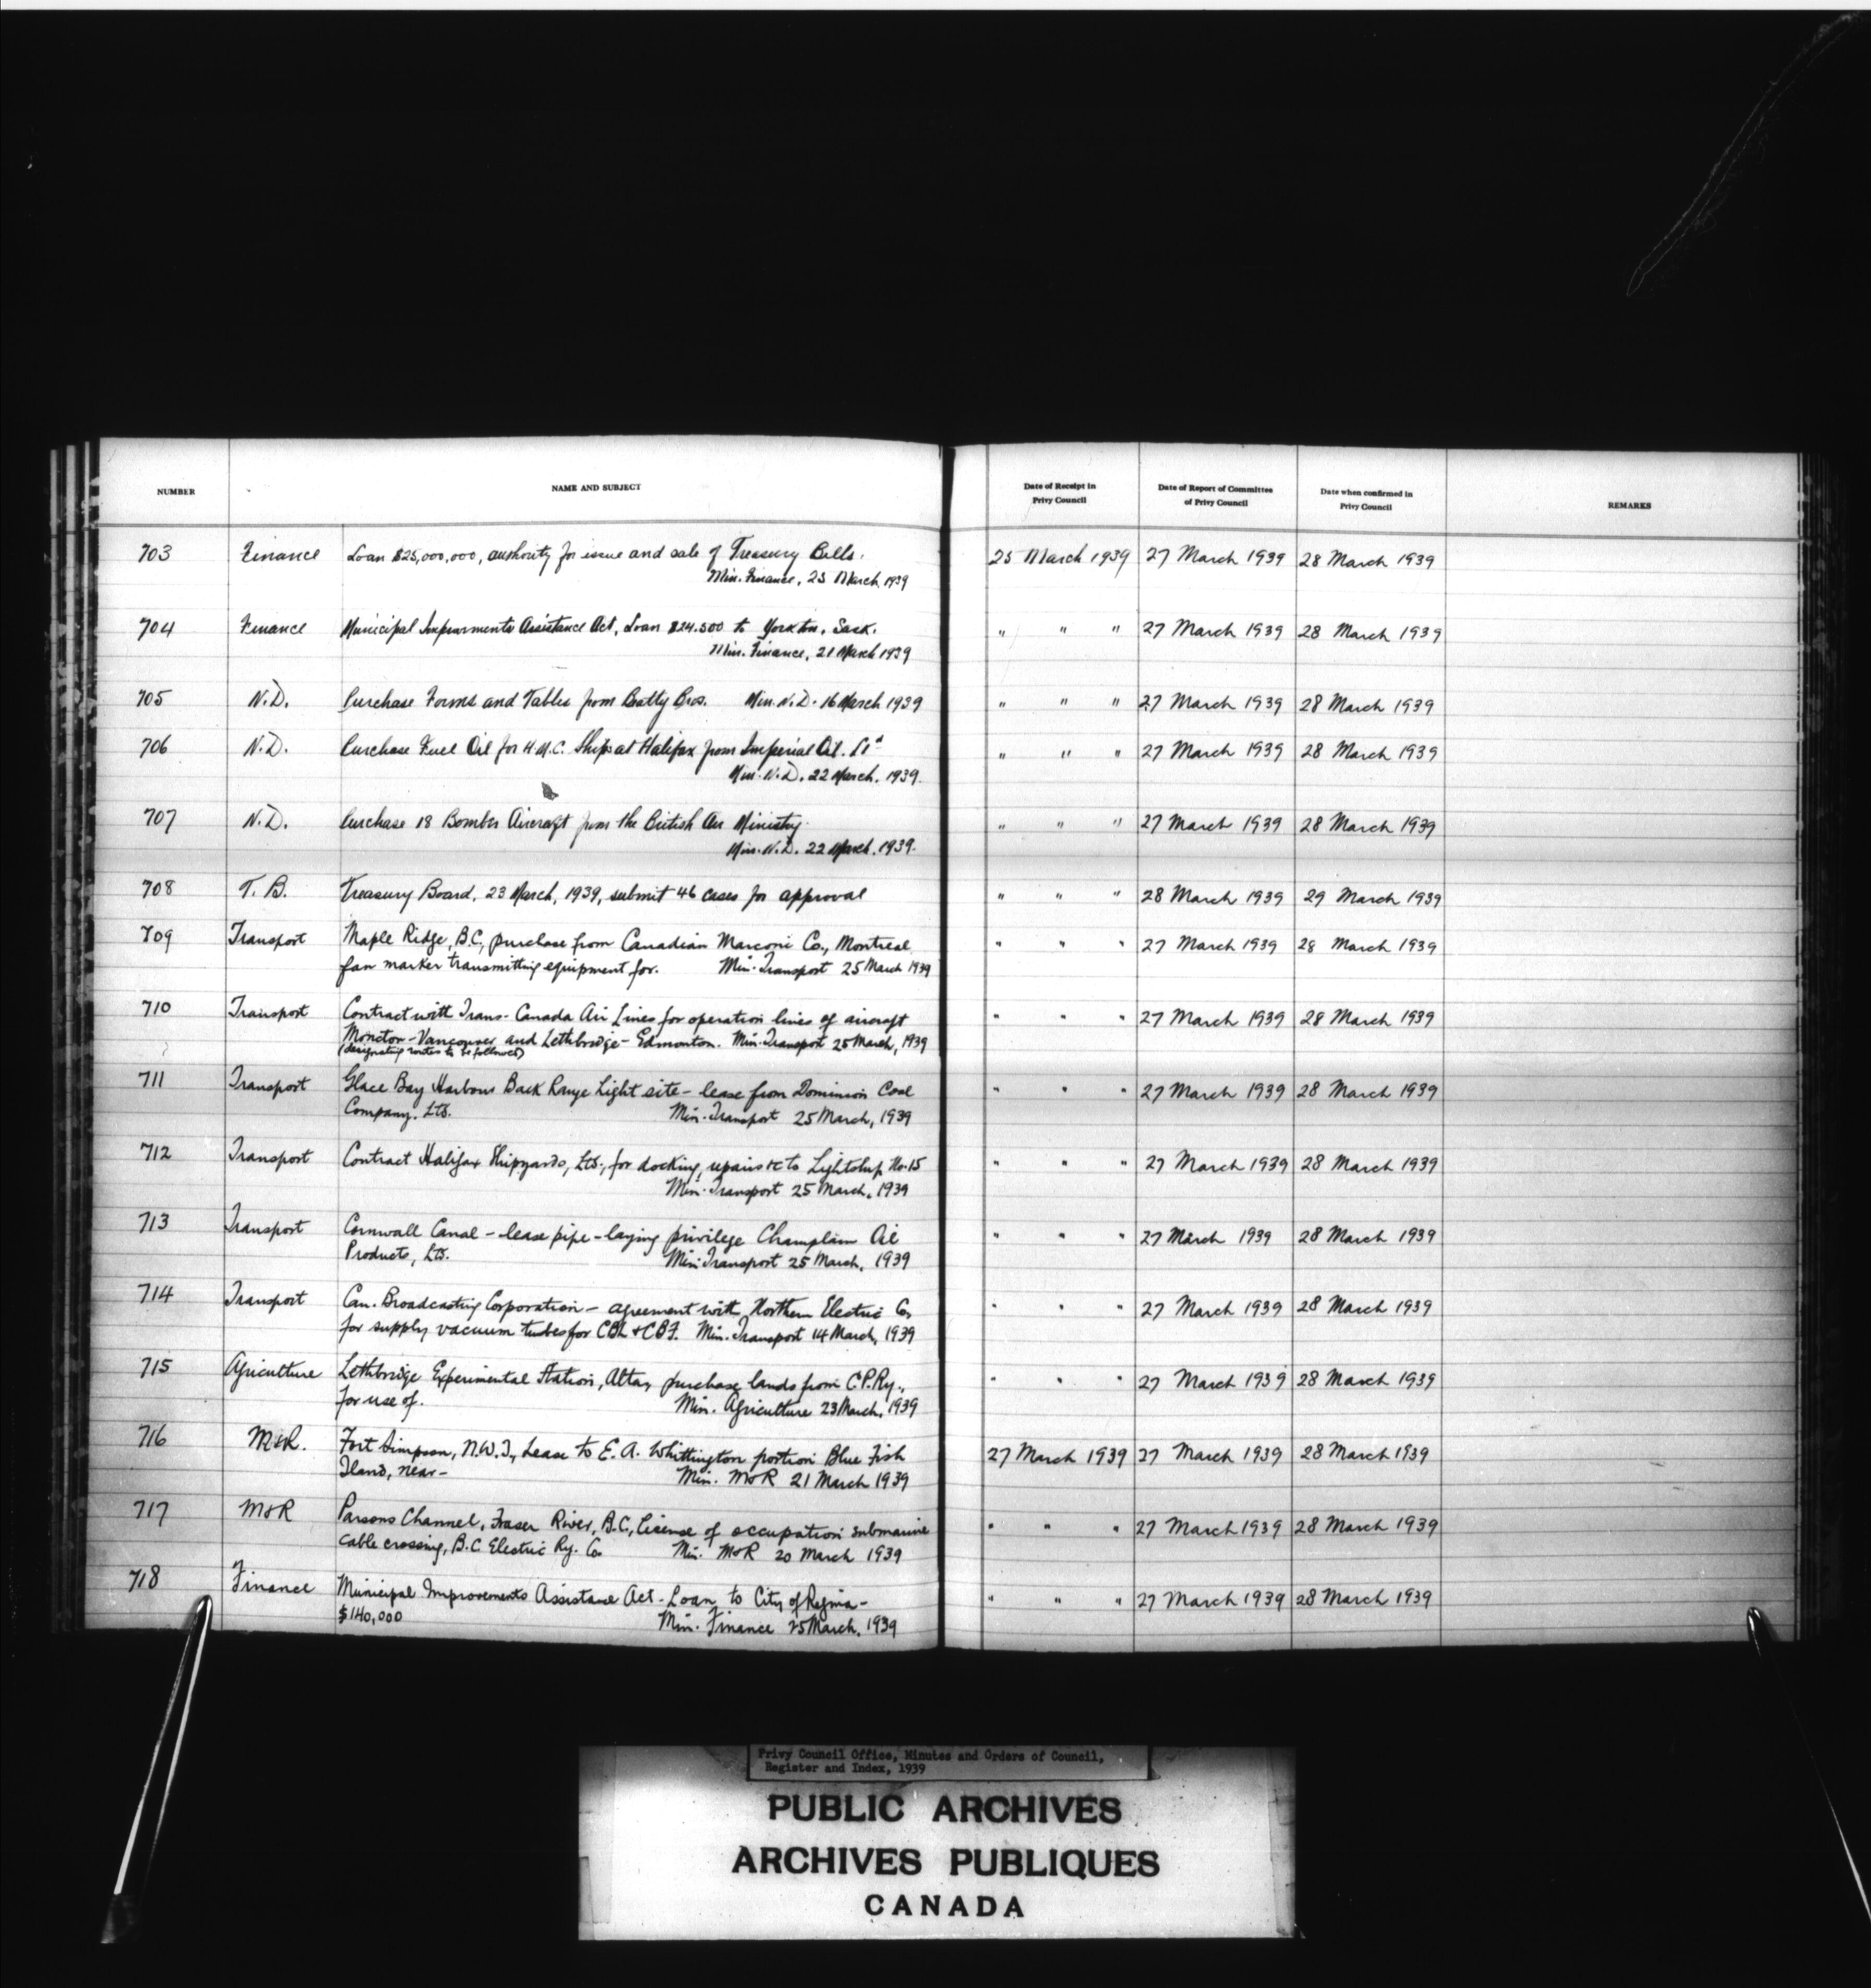 NUMBER NAME AND SUBJECT Date of Receipt in Privy Council Date of Report of Committee of Privy Council Date when confirmed in Privy Council REMARKS
703 Finance Loan $25,000,000, authority for issue and sale of Treasury Bills. 25 March 1939 27 March 1939 28 March 1939
Min. Finance, 25 March 1939
704 Finance Municipal Improvements Assistance Act, Loan $24.500 to Yorkton, Sask. " " " 27 March 1939 28 March 1939
Min. Finance, 21 March 1939
705 N.D. Purchase Forms and Tables from Beatty Bros. Min. N.D. 16 March 1939 " " " 27 March 1939 28 March 1939
706 N.D. Purchase Fuel Oil for H.M.C. Ships at Halifax from Imperial Oil. Ltd " " " 27 March 1939 28 March 1939
Min. N.D. 22 March. 1939.
707 N.D. Purchase 18 Bomber Aircraft from the British Air Ministry. " " " 27 March 1939 28 March 1939
Min. N.D. 22 March. 1939.
708 T. B. Treasury Board, 23 March, 1939, submit 46 cases for approval " " " 28 March 1939 29 March 1939
709 Transport Maple Ridge, B.C., purchase from Canadian Marconi Co., Montreal " " " 27 March 1939 28 March 1939
fan marker transmitting equipment for. Min. Transport 25 March 1939
710 Transport Contract with Trans-Canada Air Lines for operation lines of aircraft " " " 27 March 1939 28 March 1939
Moncton-Vancouver and Lethbridge-Edmonton. Min. Transport 25 March, 1939
(designating routes to be followed)
711 Transport Glace Bay Harbour Back Range Light site - lease from Dominion Coal " " " 27 March 1939 28 March 1939
Company. Ltd. Min. Transport 25 March, 1939
712 Transport Contract Halifax Shipyards, Ltd., for docking, repairs &c to Lightship No. 15 " " " 27 March 1939 28 March 1939
Min. Transport 25 March, 1939
713 Transport Cornwall Canal - lease pipe-laying privilege Champlain Oil " " " 27 March 1939 28 March 1939
Products, Ltd. Min. Transport 25 March, 1939
714 Transport Can. Broadcasting Corporation - agreement with Northern Electric Co. " " " 27 March 1939 28 March 1939
for supply vacuum tubes for CBL & CBF. Min. Transport 14 March, 1939
715 Agriculture Lethbridge Experimental Station, Alta., purchase lands from C.P.Ry., " " " 27 March 1939 28 March 1939
for use of. Min. Agriculture 23 March, 1939
716 M&R. Fort Simpson, N.W.T., Lease to E. A. Whittington portion Blue Fish 27 March 1939 27 March 1939 28 March 1939
Iland, near- Min. M&R 21 March 1939
717 M&R Parsons Channel, Fraser River, B.C., License of occupation submarine " " " 27 March 1939 28 March 1939
cable crossing, B.C. Electric Ry. Co. Min. M&R 20 March 1939
718 Finance Municipal Improvements Assistance Act - Loan to City of Regina- " " " 27 March 1939 28 March 1939
$140,000 Min. Finance 25 March, 1939
Privy Council Office, Minutes and Orders of Council,
Register and Index, 1939
PUBLIC ARCHIVES
ARCHIVES PUBLIQUES
CANADA